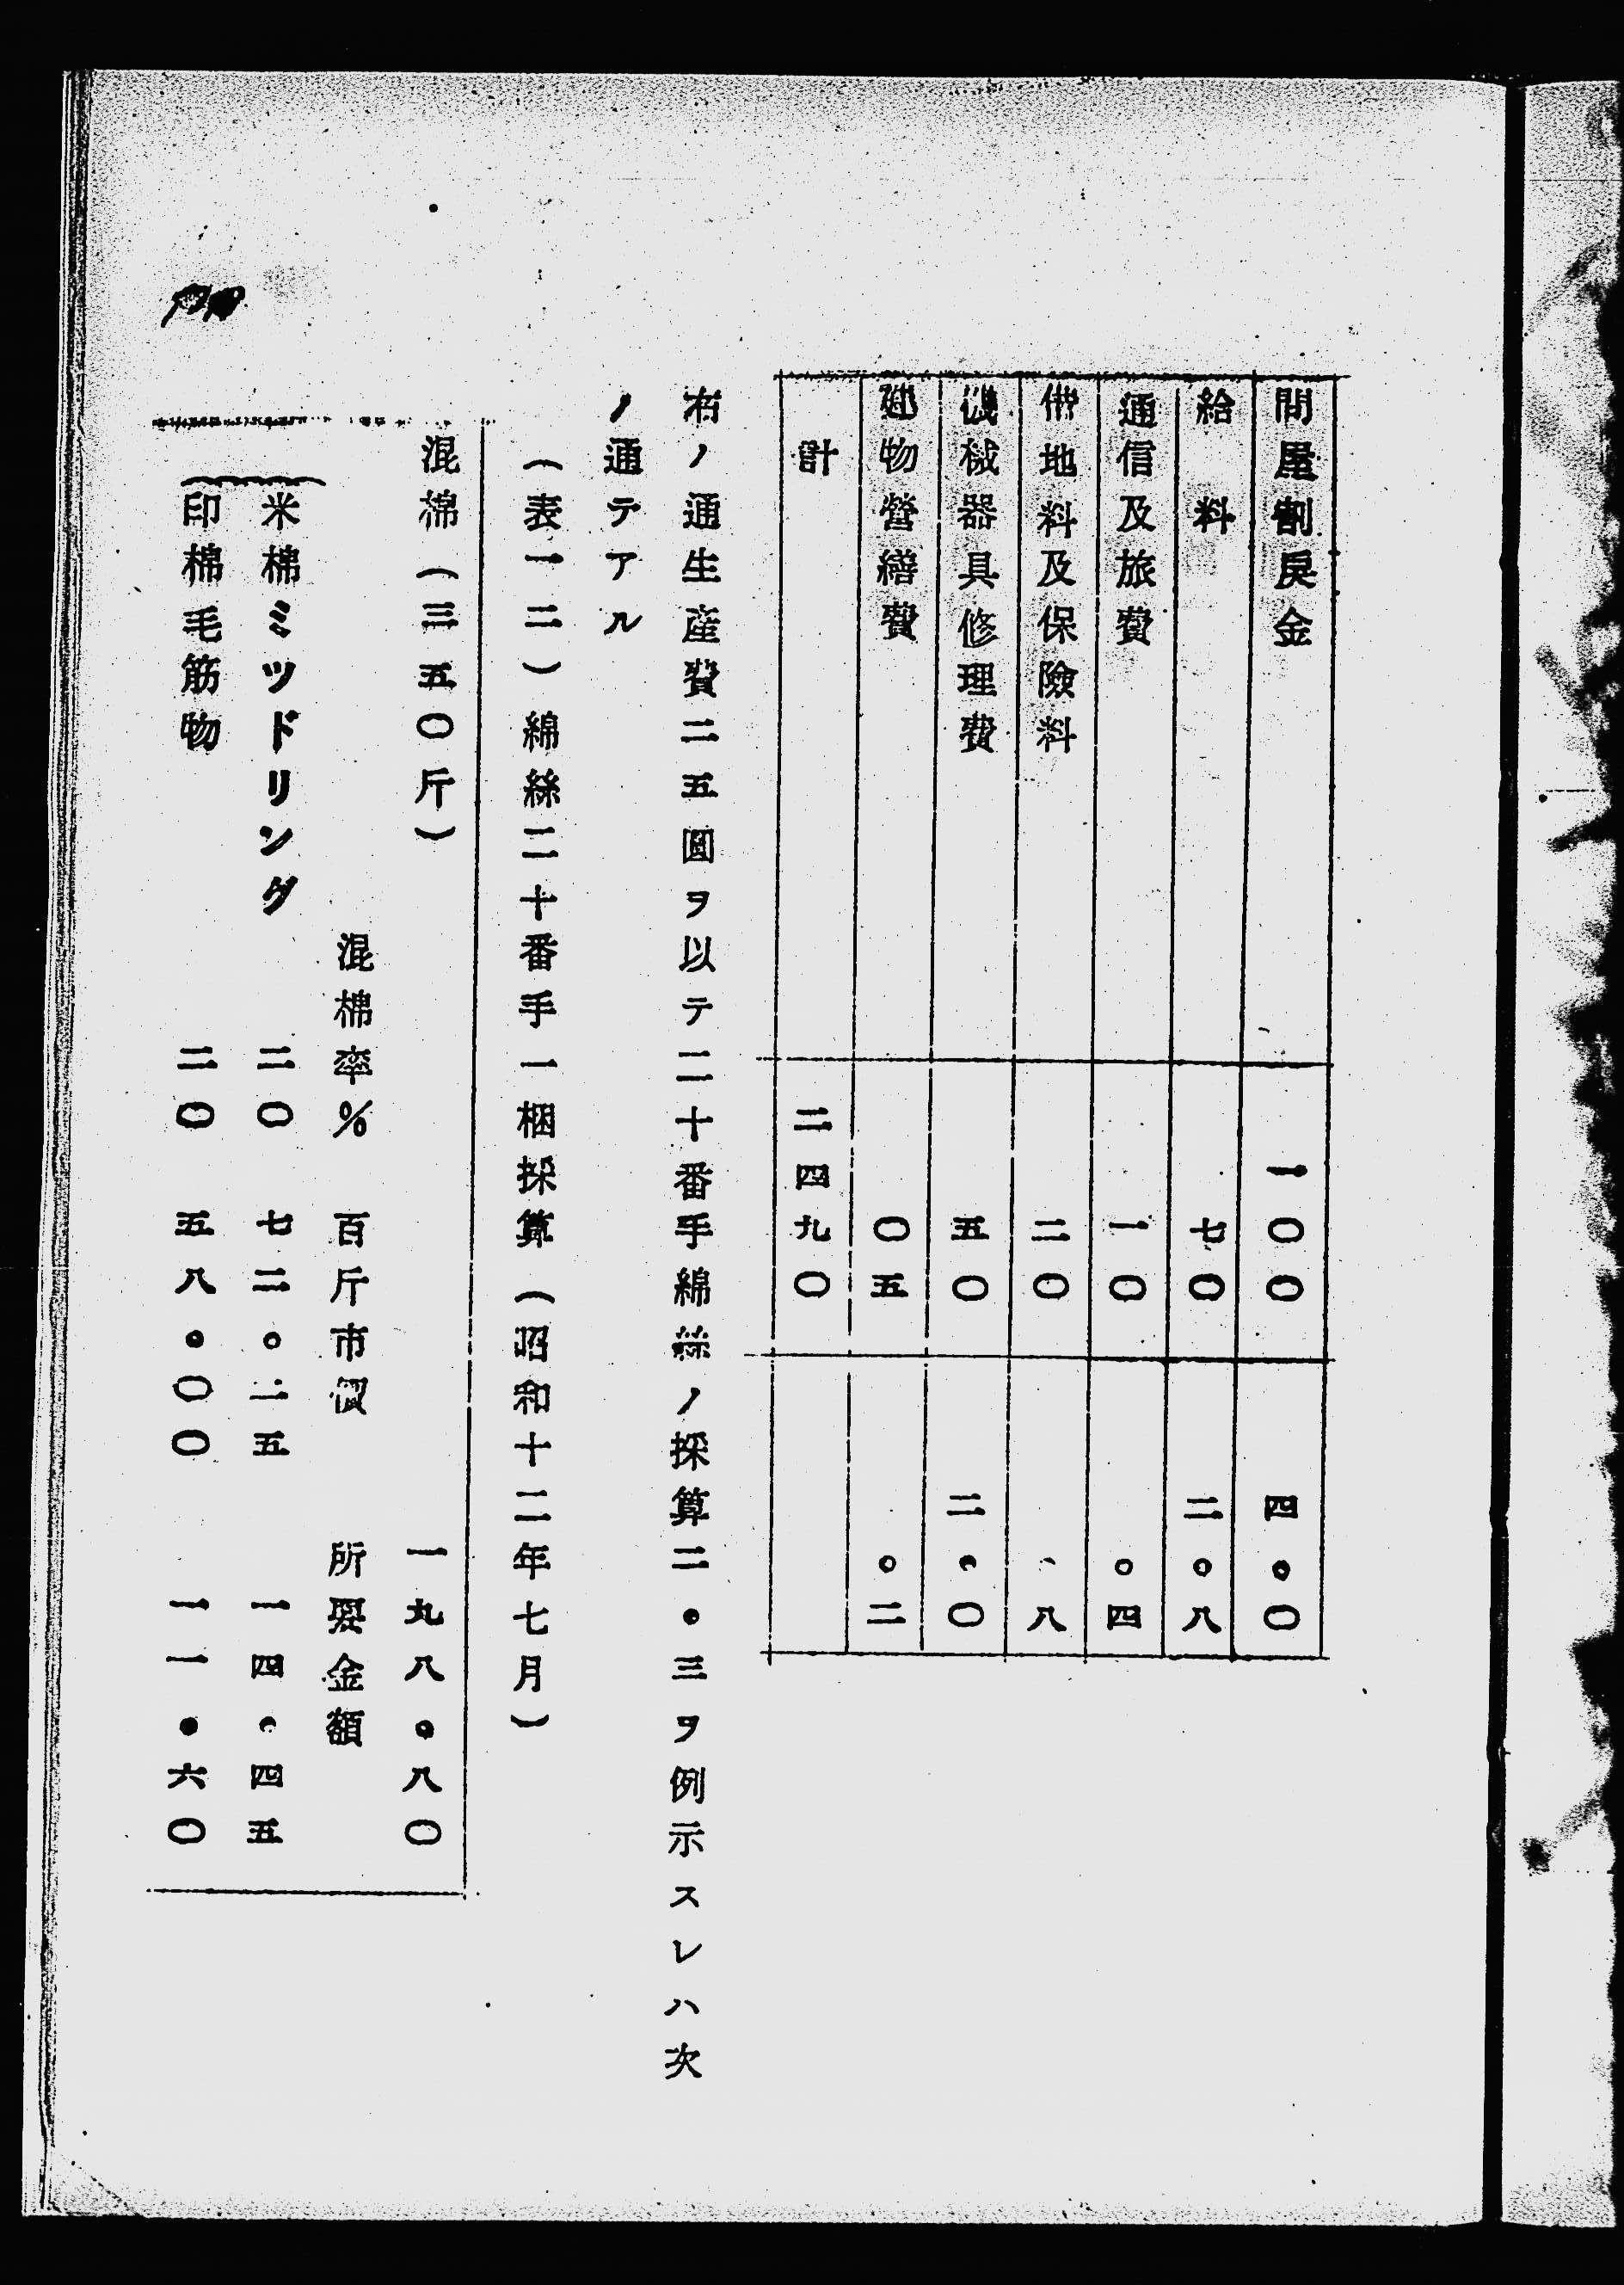 問屋割戻金 一〇〇 四・〇
給料 七〇 二・八
通信及旅費 一〇 ・四
借地料及保險料 二〇 、八
機械器具修理費 五〇 二・〇
建物營繕費 〇五 ・二
計 二四九〇
右ノ通生産費二五圓ヲ以テ二十番手綿絲ノ採算二・三ヲ例示スレハ次
ノ通テアル
(表一二)綿絲二十番手一梱採算(昭和十二年七月)
混棉(三五〇斤) 一九八・八〇
混棉率% 百斤市價 所要金額
米棉ミツドリング 二〇 七二・二五 一四・四五
印棉毛筋物 二〇 五八・〇〇 一一・六〇